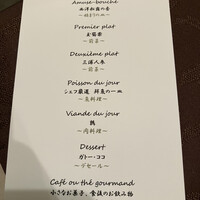 Amuse-bouche
西洋松露の香
～始まりの一口～
Premier plat
金目鯛
～前菜～
Deuxième plat
三浦人参
～前菜～
Poisson du jour
シェフ厳選 拝見の一皿
～魚料理～
Viande du jour
鴨
～肉料理～
Dessert
ガトー・ココ
～デセール～
Café ou thé gourmand
小さなお菓子、食後のお飲み物